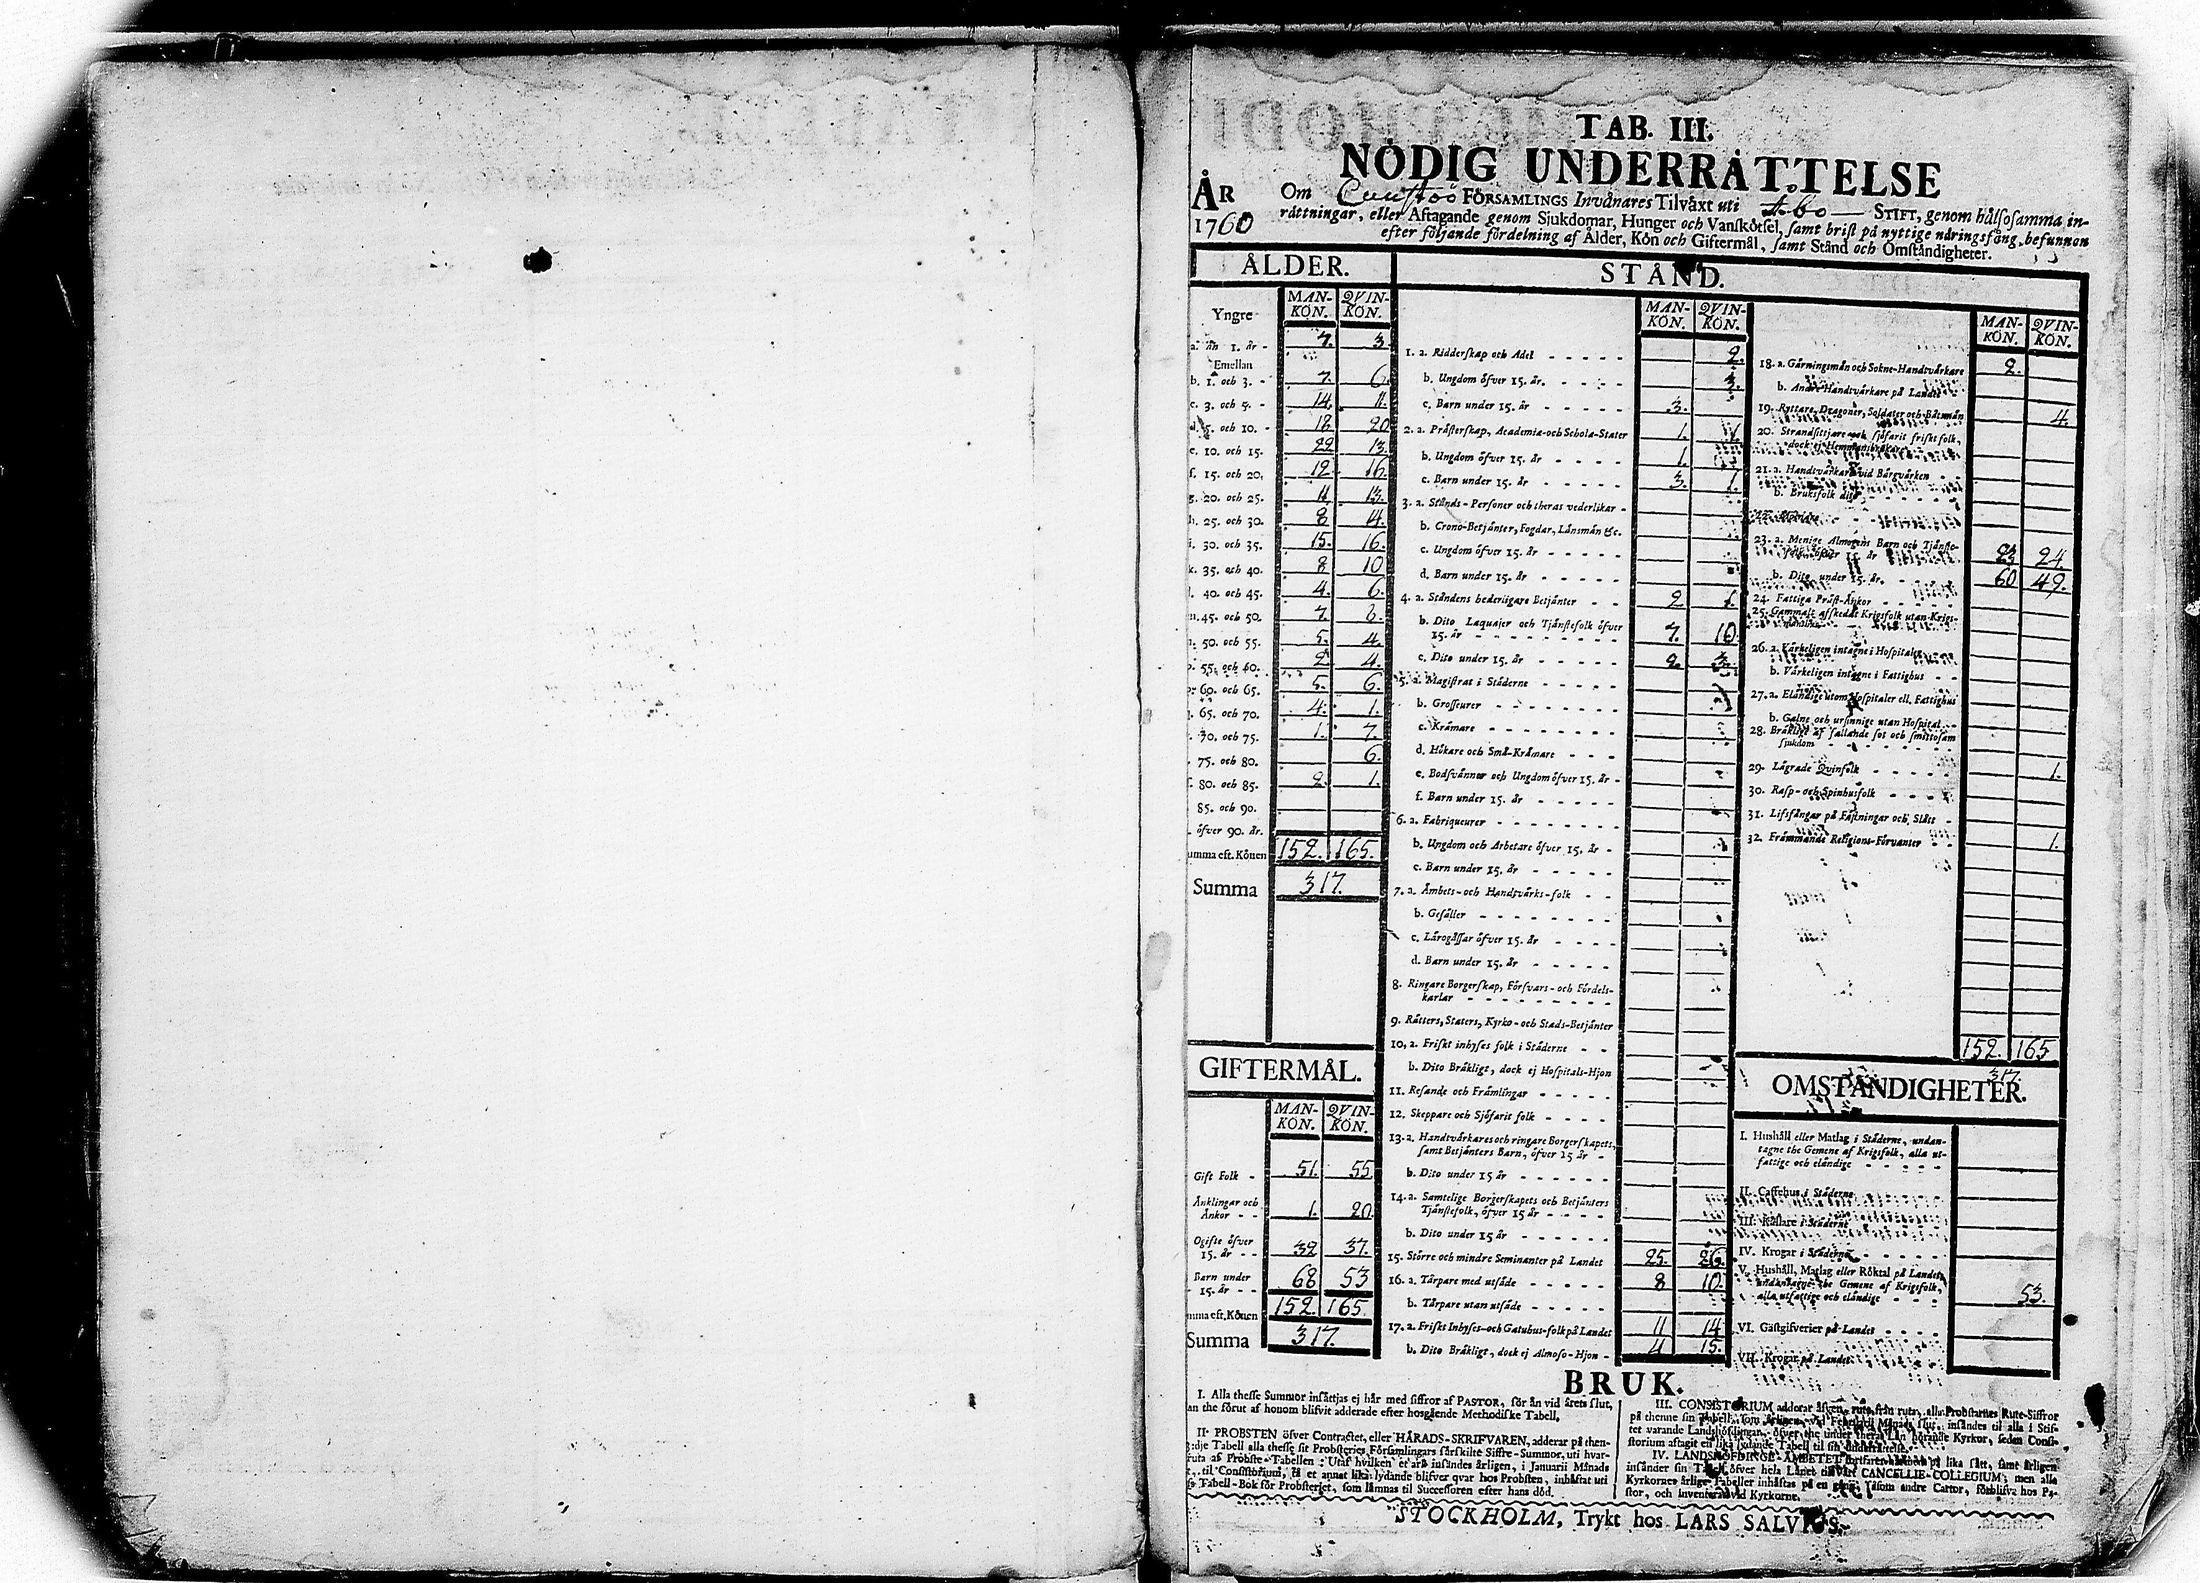 TAB. III.
NÖDIG UNDERRÄTTELSE
ÅR
1760
Om Cuustoö FÖRSAMLINGS Invånares Tilväxt uti Åbo — STIFT, genom hälsosamma in-
rättningar, eller Aftagande genom Sjukdomar, Hunger och Vanskötsel, samt brist på nyttige näringsfång, befunnen
efter följande fördelning af Ålder, Kön och Giftermål, samt Stånd och Omständigheter.
ÅLDER.
MAN-KÖN. QVIN-KÖN.
Yngre
a. än 1. år - 7. 3
Emellan
b. 1. och 3. - 7. 6
c. 3. och 5. - 14. 11.
d. 5. och 10. - 18 20
e. 10. och 15. 22 13.
f. 15. och 20. 12. 16.
g. 20. och 25. 11. 13.
h. 25. och 30. 8 14.
i. 30. och 35. 15. 16.
k. 35. och 40. 8 10
l. 40. och 45. 4. 6.
m. 45. och 50. 7. 8.
n. 50. och 55. 5. 4.
o. 55. och 60. 2 4.
p. 60. och 65. 5. 6.
q. 65. och 70. 4. 1.
70. och 75. 1. 7.
75. och 80. 6.
80. och 85. 2. 1.
85. och 90.
öfver 90. år.
umma eft. Könen 152. 165.
Summa 317.
GIFTERMÅL.
MAN-KÖN. QVIN-KÖN.
Gift Folk - 51. 55
Änklingar och
Änkor - - 1. 20
Ogifte öfver
15. år - - 32 37.
Barn under
15. år - - 68 53
mma eft. Könen 152. 165.
Summa 317.
STÅND.
MAN-KÖN. QVIN-KÖN.
1. a. Ridderskap och Adel 2.
b. Ungdom öfver 15. år. 3.
c. Barn under 15. år 3.
2. a. Prästerskap, Academiæ-och Schola-Stater 1. 1.
b. Ungdom öfver 15. år 1.
c. Barn under 15. år 3. 1.
3. a. Stånds-Personer och theras vederlikar
b. Crono-Betjänter, Fogdar, Länsmän &c.
c. Ungdom öfver 15. år
d. Barn under 15. år
4. a. Ståndens hederligare Betjänter 2 1.
b. Dito Laquajer och Tjänstefolk öfver
15. år 7. 10
c. Dito under 15. år 2. 3.
5. a. Magistrat i Städerne
b. Grosseurer
c. Krämare
d. Hökare och Små-Krämare
e. Bodsvänner och Ungdom öfver 15. år
f. Barn under 15. år
6. a. Fabriqueurer
b. Ungdom och Arbetare öfver 15. år
c. Barn under 15. år
7. a. Ämbets-och Handtvärks-folk
b. Gesäller
c. Lärogåssar öfver 15. år
d. Barn under 15. år
8. Ringare Borgerskap, Försvars-och Fördels-
karlar
9. Rätters, Staters, Kyrko-och Stads-Betjänter
10. a. Friskt inhyses folk i Städerne
b. Dito Bräkligt, dock ej Hospitals-Hjon
11. Resande och Främlingar
12. Skeppare och Sjöfarit folk
13. a. Handtvärkares och ringare Borgerskapets,
samt Betjänters Barn, öfver 15 år
b. Dito under 15 år
14. a. Samtelige Borgerskapets och Betjänters
Tjänstefolk, öfver 15 år
b. Dito under 15 år
15. Större och mindre Seminanter på Landet 25. 26.
16. a. Tårpare med utsäde 8 10.
b. Tårpare utan utsäde
17. a. Friskt Inhyses-och Gatuhus-folk på Landet 11 14
b. Dito Bräkligt, dock ej Almoso-Hjon 4 15.
MAN-KÖN. QVIN-KÖN.
18. a. Gärningsmän och Sokne-Handtvärkare 2.
b. Andre Handtvärkare på Landet
19. Ryttare, Dragoner, Soldater och Båtsmän 4.
20. Strandsittjare och sjöfarit friskt folk,
dock ej Hemmansbrukare
21. a. Handtvärkare vid Bärgvärken
b. Bruksfolk dito
23. a. Menige Almogens Barn och Tjänste-
folk, öfver 15 år 23 24
b. Dito under 15. år. 60 49.
24. Fattiga Präst-Änkor
25. Gammalt afskedat Krigsfolk utan Krigs-
26. a. Värkeligen intagne i Hospitaler
b. Värkeligen intagne i Fattighus
27. a. Eländige utom Hospitaler ell. Fattighus
b. Galne och ursinnige utan Hospital
28. Bräklige af fallande sot och smittosam
sjukdom
29. Lägrade Qvinfolk 1.
30. Rasp-och Spinhusfolk
31. Lifsfångar på Fästningar och Slått
32. Främmande Religions-Förvanter 1.
152. 165
317.
OMSTÄNDIGHETER.
I. Hushåll eller Matlag i Städerne, undan-
tagne the Gemene af Krigsfolk, alla ut-
fattige och eländige
II. Caffehus i Städerne
III. Källare i Städerne
IV. Krogar i Städerne
V. Hushåll, Matlag eller Röktal på Landet,
undantagne the Gemene af Krigsfolk,
alla utfattige och eländige 53.
VI. Gästgifverier på Landet
VII. Krogar på Landet
BRUK.
I. Alla thesse Summor insättjas ej här med siffror af PASTOR, för än vid årets slut,
an the förut af honom blifvit adderade efter hosgående Methodiske Tabell.
II. PROBSTEN öfver Contractet, eller HÄRADS-SKRIFVAREN, adderar på then-
dje Tabell alla thesse sit Probsteries Församlingars särskilte Siffre-Summor, uti hvar-
ruta af Probste-Tabellen: Utaf hvilken et ark insändes årligen, i Januarii Månads
til Consistorium, et annat lika lydande blifver qvar hos Probsten, inhäftat uti
Tabell-Bok för Probsteriet, som lämnas til Successoren efter hans död.
III. CONSISTORIUM adderar äfven, ruta från ruta, alla Probstarnes Rute-Siffror
på thenne sin Tabell, som årligen, vid Februarii Månads slut, insändes til alla i Stif-
tet varande Landshöfdingar, öfver the under theras Län hörande Kyrkor, sedan Consi-
storium aftagit en lika lydande Tabell til sin underrättelse.
IV. LANDSHÖFDINGE-ÄMBETET på lika sätt, samt årligen
insänder sin Tabell öfver hela Länet til CANCELLIE-COLLEGIUM; men alla
Kyrkornes årlige Tabeller inhäftas på en gång, såsom andre Cartor, förblifva hos Pa-
stor, och Inventeras vid Kyrkorne.
STOCKHOLM, Trykt hos LARS SALVIUS.